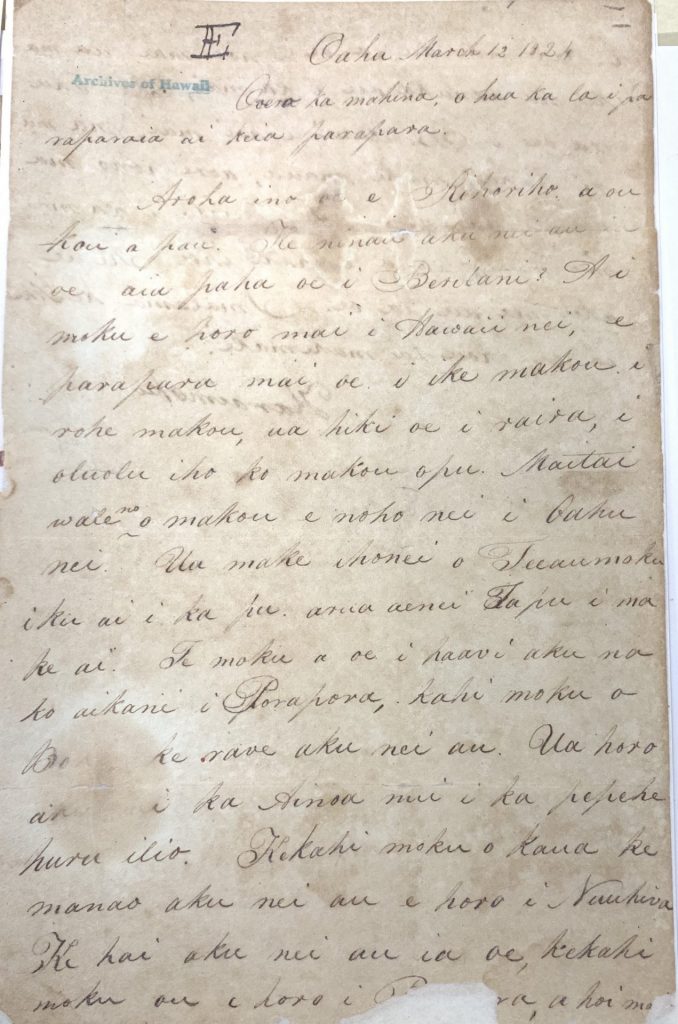 Æ Oahu March 12 1824
Archives of Hawaii
Overo ka mahina, o hua ka la i pa
raparaia ai keia parapara.
Aroha ino oe e Rihoriho. a ou
kou a pau. Ke ninau aku nei au i
oe aia paha oe i Beritani? A i
moku e horo mai i Hawaii nei, e
parapara mai oe. i ike makou. i
rohe makou, ua hiki oe i raira, i
oluolu iho ko makou opu. Maitai
wale no o makou e noho nei i Oahu
nei. Ua make ihonei o Teeaumoku
i ku ai i ka pu. arua aenei Tapu i ma
ke ai. Te moku a oe i haavi aku na
ko aikane i Porapora, kahi moku o
ke rave aku nei au. Ua horo
i ka Ainoa nui i ka pepehe
huru ilio. Kekahi moku o kaua ke
manao aku nei au e horo i Nuuhiva
Ke hai aku nei au ia oe, kekahi
moku ou e horo i a hoi mai